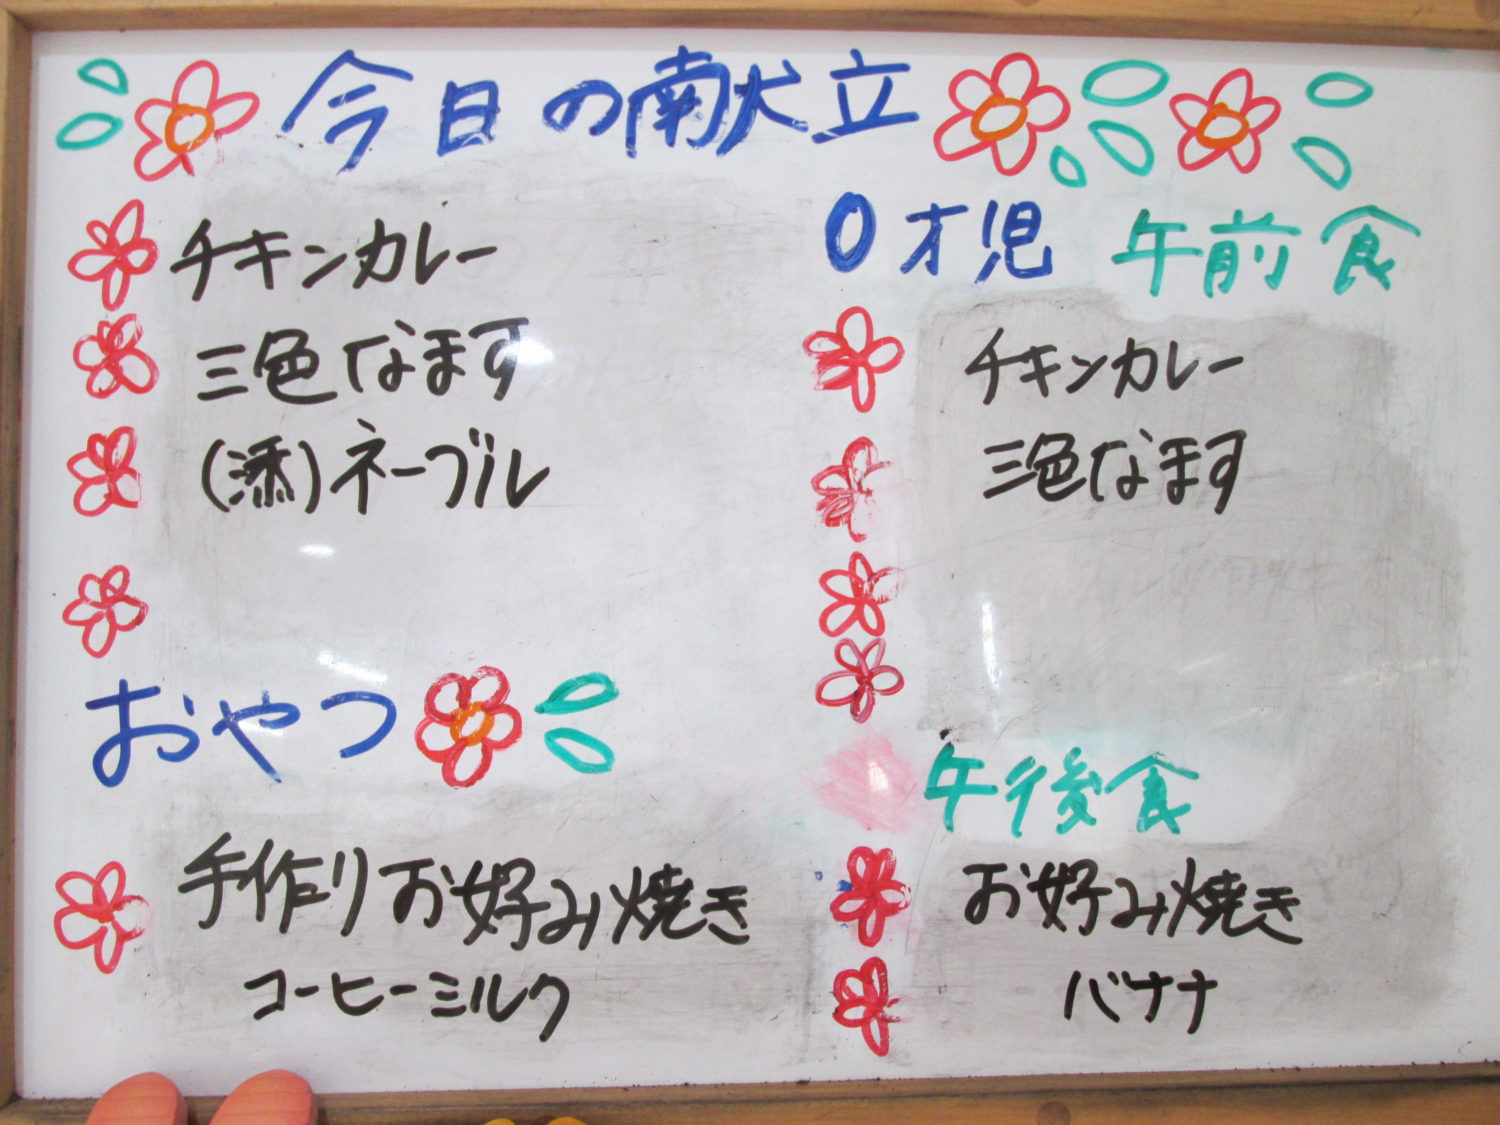 今日の献立
チキンカレー
三色なます
(添)ネーブル
おやつ
手作りお好み焼き
コーヒーミルク
0才児 午前食
チキンカレー
三色なます
午後食
お好み焼き
バナナ